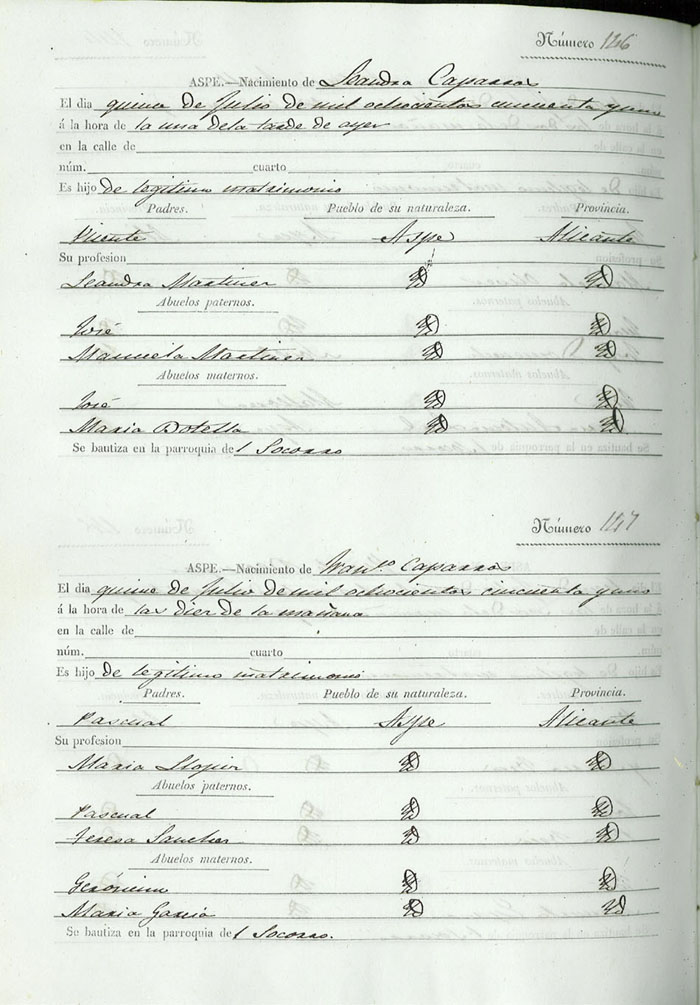 Número 126
ASPE.—Nacimiento de Leandra Caparros
El dia quince de Julio de mil ochocientos cincuenta y uno
á la hora de la una de la tarde de ayer
en la calle de
núm. cuarto
Es hijo de legitimo matrimonio
Padres. Pueblo de su naturaleza. Provincia.
Vicente Aspe Alicante
Su profesion
Leandra Martinez
Abuelos paternos.
José
Manuela Martinez
Abuelos maternos.
José
Maria Botella
Se bautiza en la parroquia del Socorro
Número 127
ASPE.—Nacimiento de Franco. Caparros
El dia quince de Julio de mil ochocientos cincuenta y uno
á la hora de las diez de la mañana
en la calle de
núm. cuarto
Es hijo de legitimo matrimonio
Padres. Pueblo de su naturaleza. Provincia.
Pascual Aspe Alicante
Su profesion
Maria Llopiz
Abuelos paternos.
Pascual
Teresa Sanchez
Abuelos maternos.
Gerónimo
Maria Garcia
Se bautiza en la parroquia del Socorro.